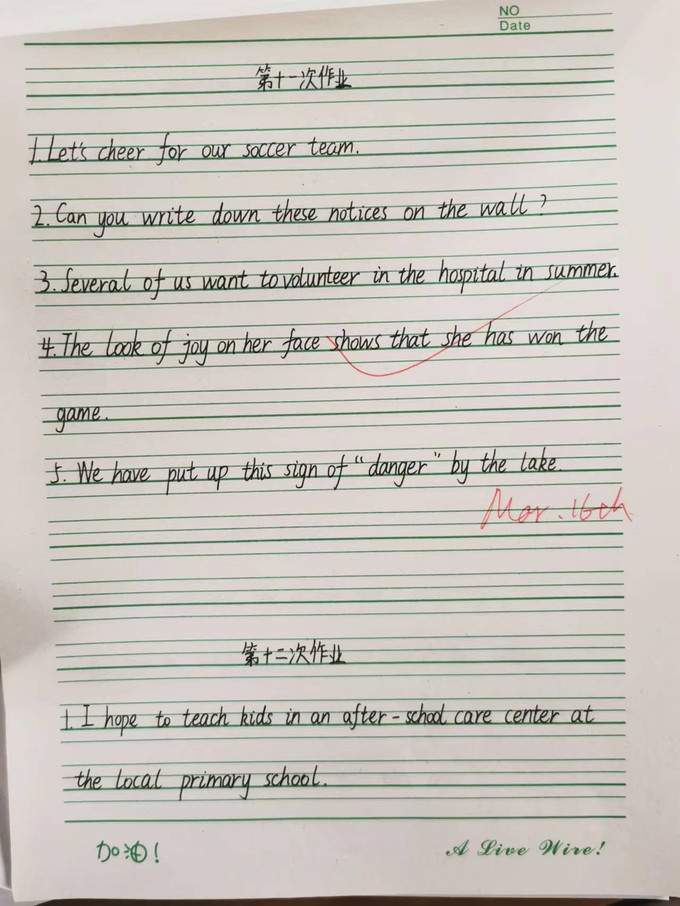 NO
Date
第十一次作业
1. Let's cheer for our soccer team.
2. Can you write down these notices on the wall?
3. Several of us want to volunteer in the hospital in summer.
4. The look of joy on her face shows that she has won the
game.
5. We have put up this sign of "danger" by the lake.
Mar. 16th
第十二次作业
1. I hope to teach kids in an after-school care center at
the local primary school.
加油!
A Live Wire!